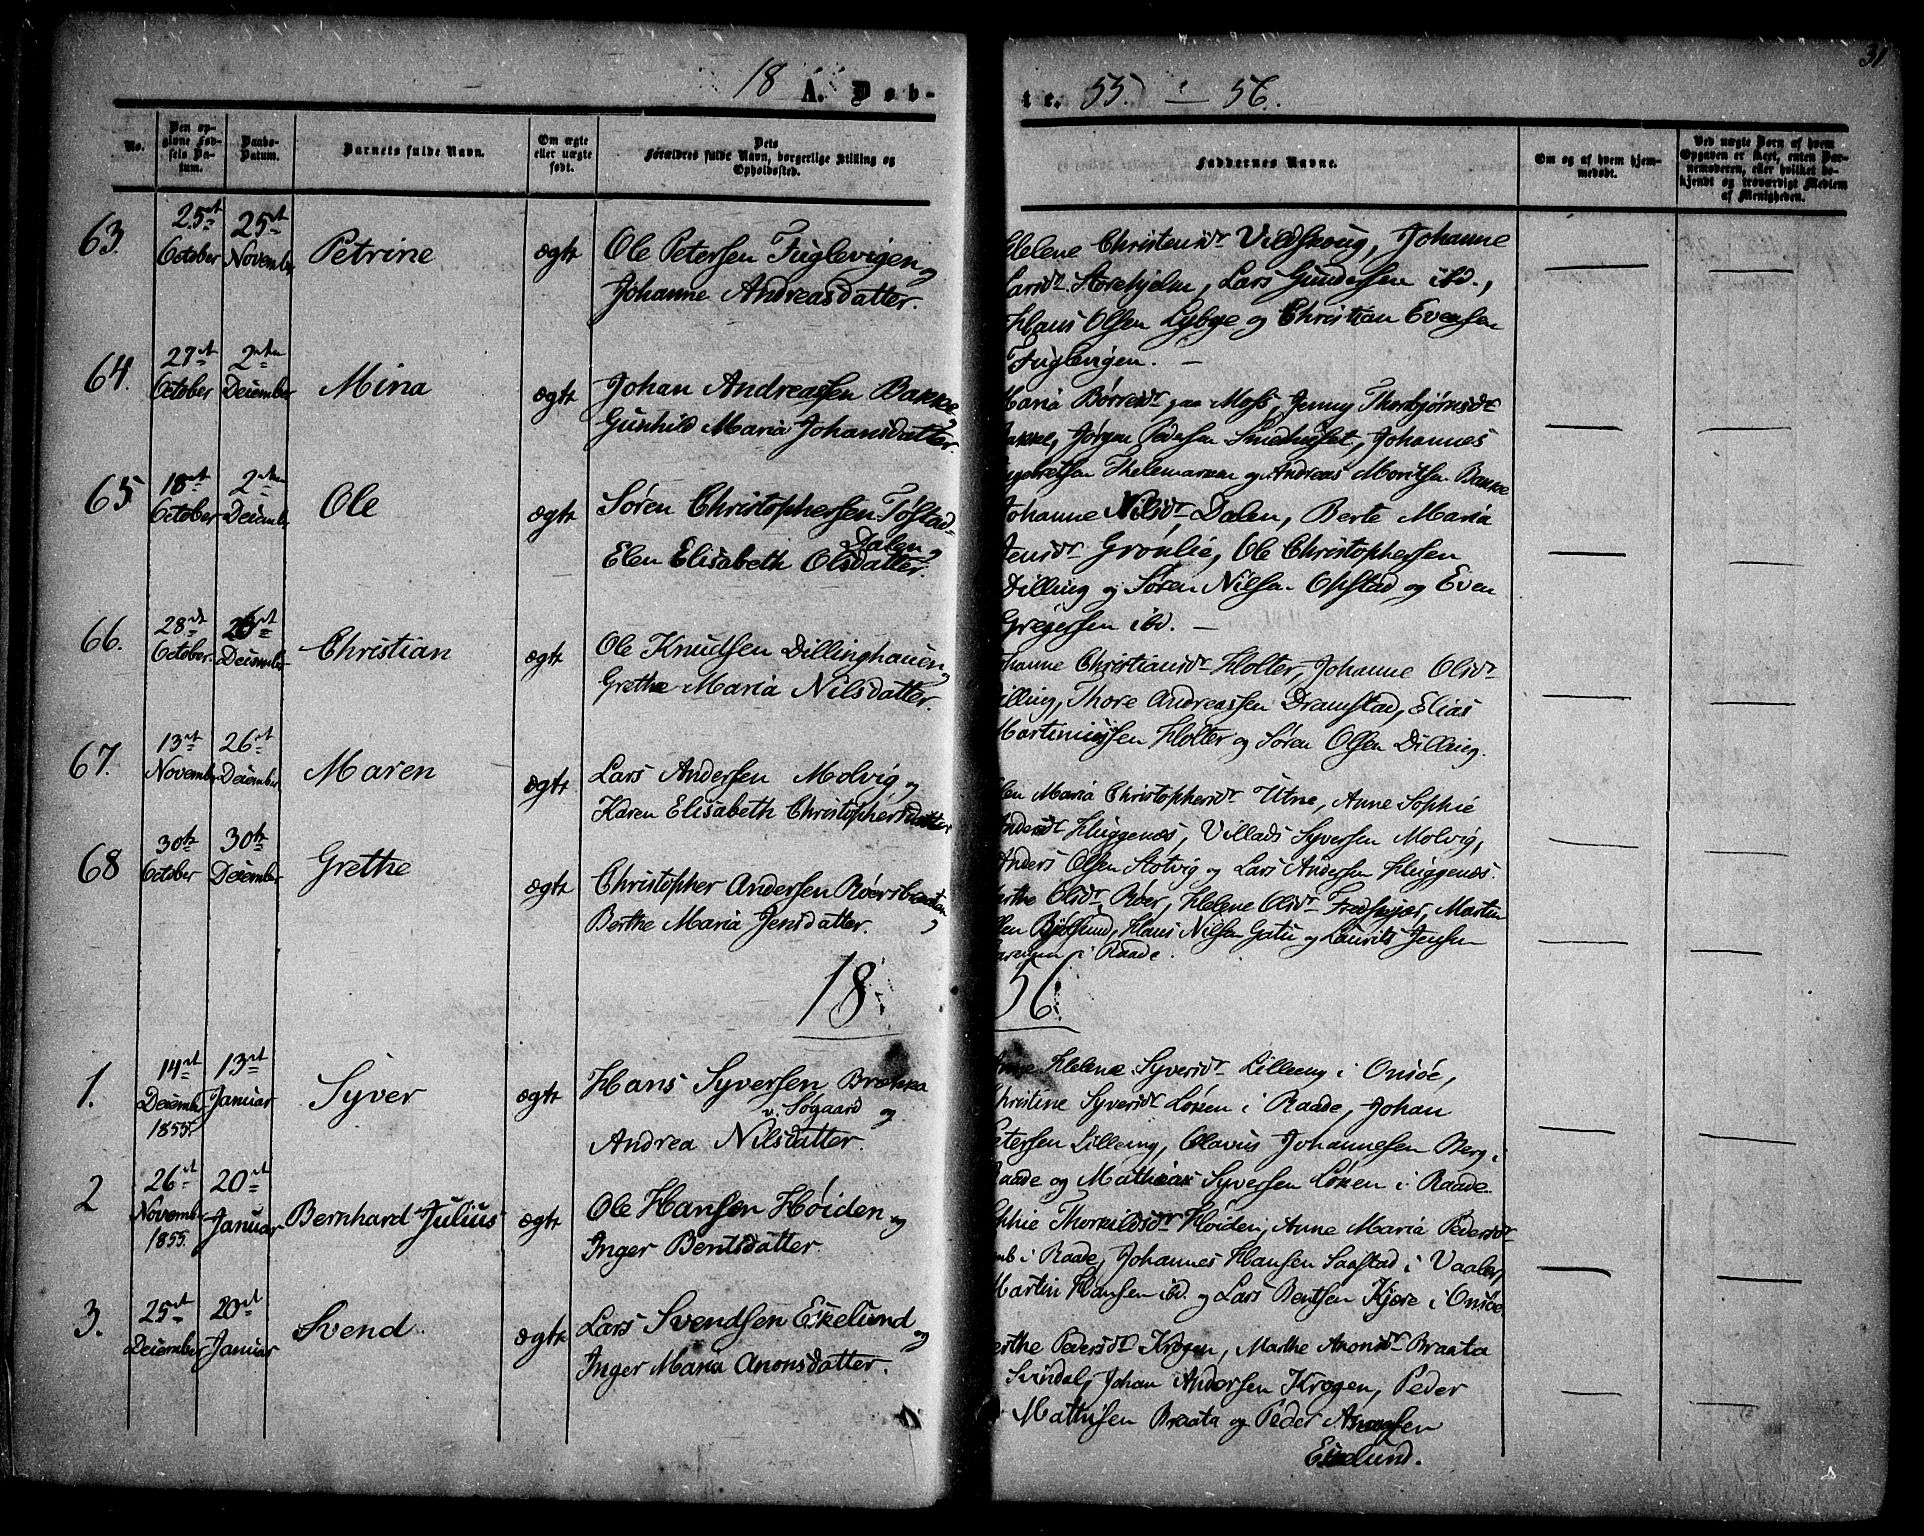 31
18 A. Døb-
te. 55. - 56.
No.
Den op-
givne Fød-
sels Da-
tum.
Daabs-
Datum.
Barnets fulde Navn.
Om ægte
eller uægte
født.
Dets
Forældres fulde Navn, borgerlige Stilling og
Opholdssted.
Faddernes Navne.
Om og af hvem hjem-
medøbt.
Ved uægte Børn af hvem
Opgaven er skeet, enten Bar-
nemoderen, eller hvilket be-
kjendt og troværdigt Medlem
af Menigheden.
63. 25de October 25de November Petrine ægte
Ole Petersen Fuglevigen og
Johanne Andreasdatter.
Helene Christensdr Vildskoug, Johanne
Larsdr Storehjelm, Lars Gundersen ibd.,
Hans Olsen Lybye og Christian Evensen
Fuglevigen. -
64. 27de October 2den December Mina ægte
Johan Andreassen Bakke,
Gunhild Maria Johansdatter.
Maria Børresdr paa Moss, Jenny Thorbjørnsdr
Bakke, Jørgen Pedersen Smedhuset, Johannes
Thelemarken og Andreas Moritsen Bakke
65 18de October 2den December Ole ægte
Søren Christophersen Tofstad-
Dalen,
Elen Elisabeth Olsdatter.
Johanne Nilsdr Dalen, Berte Maria
Jensdr Grønlie, Ole Christophersen
Dilling og Søren Nilsen Opstad og Even
Gregersen ibd. -
66. 28de October. December Christian ægte
Ole Knudsen Dillinghauen,
Grethe Maria Nilsdatter.
Johanne Christiansdr Holter, Johanne Olsdr
Dilling, Thore Andreassen Dramstad, Elias
Martiniussen Holter og Søren Olsen Dilling.
67. 13de November 26de December Maren ægte
Lars Andersen Molvig og
Karen Elisabeth Christophersdatter
Elen Maria Christophersdr Utne, Anne Sophie
Andersdr Huggenæs, Villads Syversen Molvig,
Anders Olsen Stotvig og Lars Andersen Huggenæs.
68 30te October 30te December Grethe ægte
Christopher Andersen Røersbraaten,
Berthe Maria Jensdatter.
Marthe Olsdr Røer, Helene Olsdr Fredskjær, Martin
Olsen Bjølsund, Hans Nilsen Gatu og Laurits Jensen
i Raade.
18. 56.
1. 14de December 1855. 13de Januar Syver ægte
Hans Syversen Brække
v. Søgaard og
Andrea Nilsdatter.
Anne Helene Syversdr Lilleeng i Onsøe,
Christine Syversdr Løken i Raade, Johan
Petersen Lilleeng, Olavus Johannesen Berg i
Raade og Mathias Syversen Løken i Raade.
2 26de Novemb. 1855. 20de Januar Bernhard Julius ægte
Ole Hansen Høiden og
Inger Bentsdatter.
Sophie Thorkildsdr Høiden, Anne Maria Pedersdr
i Raade, Johannes Hansen Saastad i Vaaler,
Martin Hansen ibd. og Lars Bentsen Kjære i Onsøe
3. 25de December 20de Januar Svend ægte
Lars Svendsen Eskelund og
Inger Maria Anonsdatter.
Berthe Pedersdr Krogen, Marthe Anonsdr Braata
Svindal, Johan Andersen Krogen, Peder
Mathisen Braata og Peder Anonsen
Eskelund.